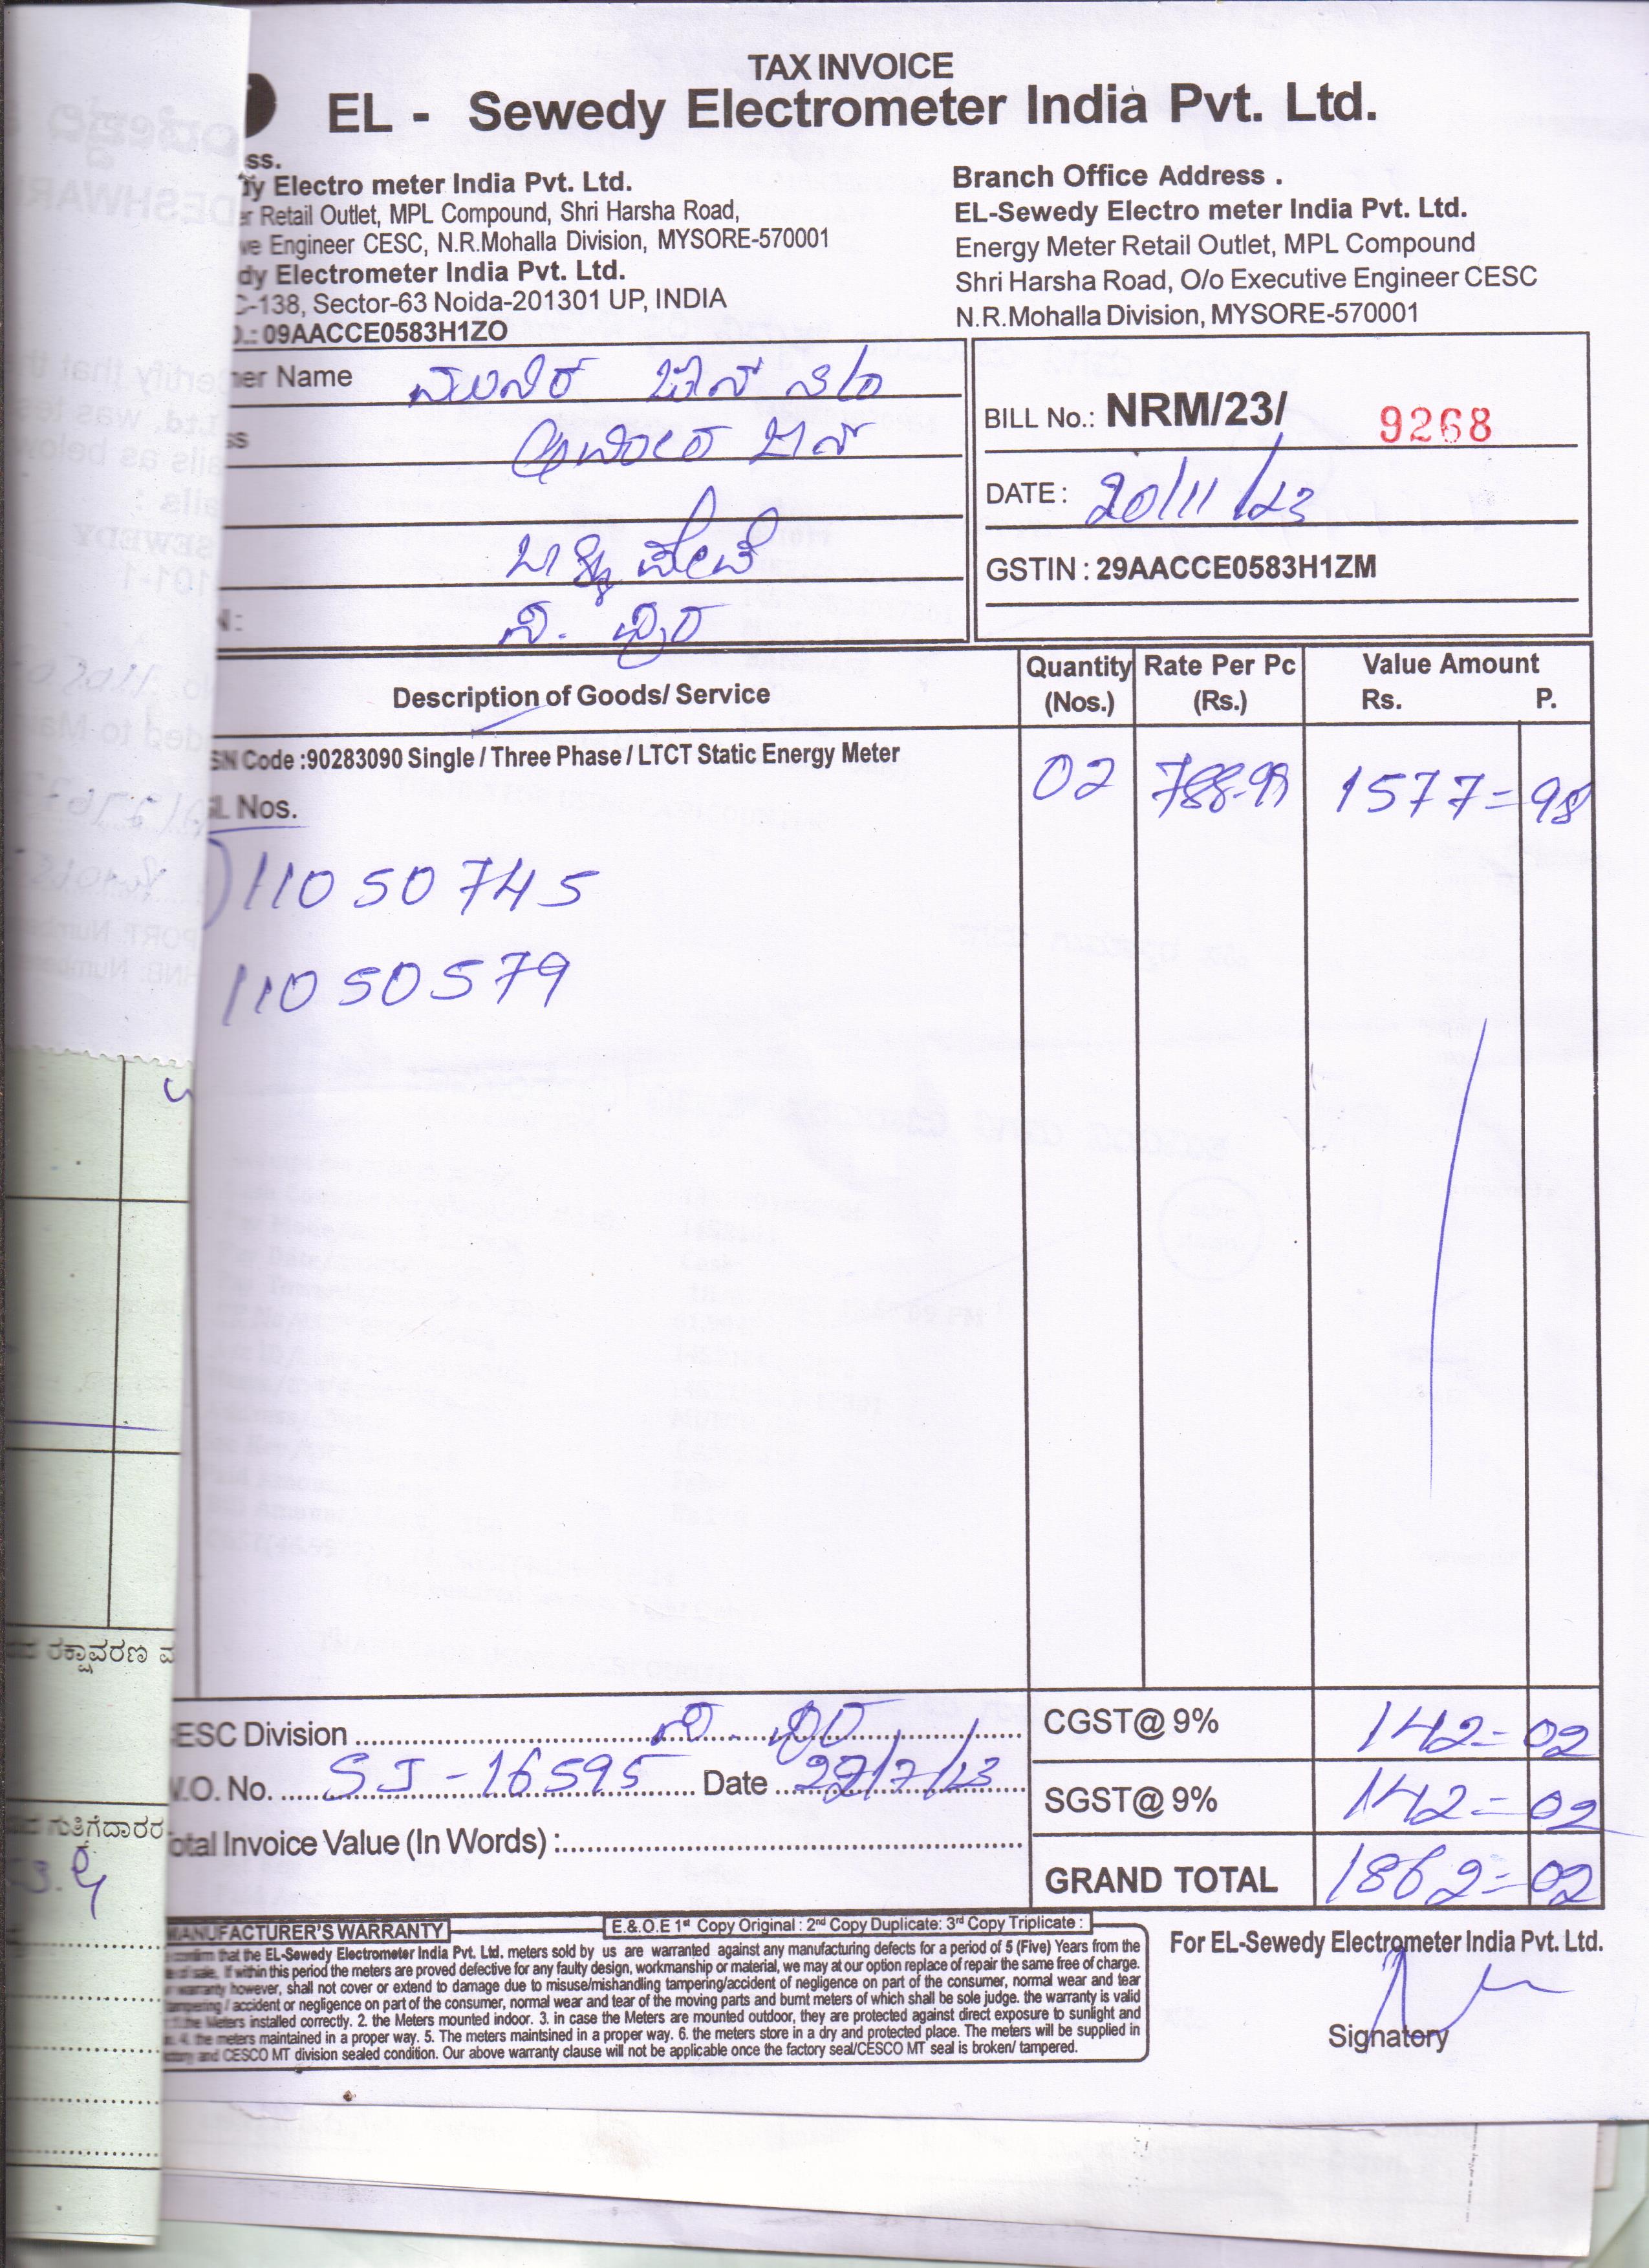 TAX INVOICE
EL - Sewedy Electrometer India Pvt. Ltd.
Electro meter India Pvt. Ltd.
Retail Outlet, MPL Compound, Shri Harsha Road,
Engineer CESC, N.R.Mohalla Division, MYSORE-570001
Electrometer India Pvt. Ltd.
C-138, Sector-63 Noida-201301 UP, INDIA
09AACCE0583H1ZO
Branch Office Address .
EL-Sewedy Electro meter India Pvt. Ltd.
Energy Meter Retail Outlet, MPL Compound
Shri Harsha Road, O/o Executive Engineer CESC
N.R.Mohalla Division, MYSORE-570001
Name
BILL No.: NRM/23/ 9268
DATE : 20/11/23
GSTIN : 29AACCE0583H1ZM
Description of Goods/ Service
Quantity (Nos.)
Rate Per Pc (Rs.)
Value Amount
Rs. P.
Code :90283090 Single / Three Phase / LTCT Static Energy Meter
02 788.99 1577=98
Nos.
11050745
11050579
ರಕ್ಷಾವರಣ
ಗುತ್ತಿಗೆದಾರರ
ESC Division
CGST@ 9% 142=02
.O. No. SJ-16595 Date 27/7/23
SGST@ 9% 142=02
otal Invoice Value (In Words) :
GRAND TOTAL 1862=02
MANUFACTURER'S WARRANTY
E.& .O.E 1st Copy Original : 2nd Copy Duplicate: 3rd Copy Triplicate :
that the EL-Sewedy Electrometer India Pvt. Ltd. meters sold by us are warranted against any manufacturing defects for a period of 5 (Five) Years from the
of sale. If within this period the meters are proved defective for any faulty design, workmanship or material, we may at our option replace of repair the same free of charge.
warranty however, shall not cover or extend to damage due to misuse/mishandling tampering/accident of negligence on part of the consumer, normal wear and tear
tampering / accident or negligence on part of the consumer, normal wear and tear of the moving parts and burnt meters of which shall be sole judge. the warranty is valid
the Meters installed correctly. 2. the Meters mounted indoor. 3. in case the Meters are mounted outdoor, they are protected against direct exposure to sunlight and
4. the meters maintained in a proper way. 5. The meters maintsined in a proper way. 6. the meters store in a dry and protected place. The meters will be supplied in
and CESCO MT division sealed condition. Our above warranty clause will not be applicable once the factory seal/CESCO MT seal is broken/ tampered.
For EL-Sewedy Electrometer India Pvt. Ltd.
Signatory